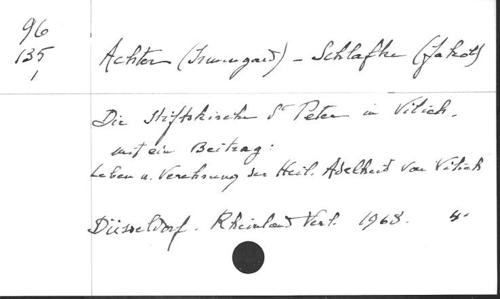 96
135
1
Achter (Irmmgard) - Schlafke (Jakob)
Die Stiftskirche St Peter in Vilich.
mit ein Beitrag:
Leben u. Verehrung der Heil. Adelheid von Vilich
Düsseldorf. Rheinland Verl. 1968. 4°